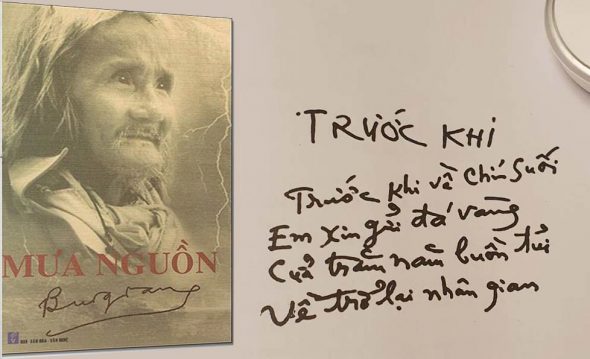 MƯA NGUỒN
Bùi Giáng
VĂN HÓA - VĂN NGHỆ
TRƯỚC KHI
Trước khi về chín suối
Em xin gửi đá vàng
Của trăm năm buồn tủi
Về trở lại nhân gian